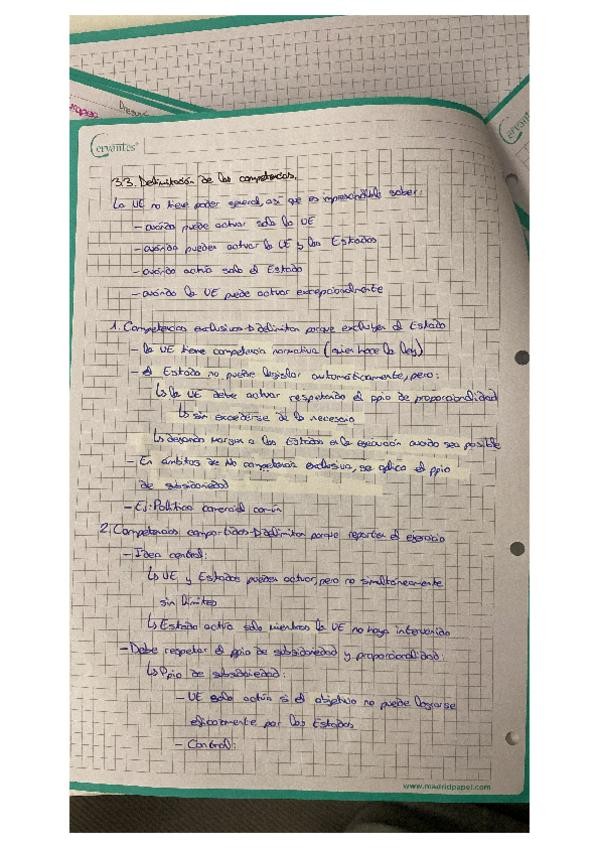 Cervantes
3.3. Delimitación de las competencias.
La UE no tiene poder general, así que es imprescindible saber:
- cuándo puede actuar solo la UE
- cuándo pueden actuar la UE y los Estados
- cuándo actúa solo el Estado
- cuándo la UE puede actuar excepcionalmente
1. Competencias exclusivas → delimitan porque excluyen al Estado
- la UE tiene competencia normativa (quien hace la ley)
- el Estado no puede legislar automáticamente, pero:
↳ la UE debe actuar respetando el ppio de proporcionalidad
↳ sin excederse de lo necesario
↳ dejando margen a los Estados en la ejecución cuando sea posible
- En ámbitos de NO competencia exclusiva, se aplica el ppio
de subsidiariedad
- Ej: Política comercial común
2. Competencias compartidas → delimitan porque reparten el ejercicio
- Idea central:
↳ UE y Estados pueden actuar, pero no simultáneamente
sin límites
↳ Estado actúa solo mientras la UE no haya intervenido
- Debe respetar el ppio de subsidiariedad y proporcionalidad:
↳ Ppio de subsidiariedad:
- UE solo actúa si el objetivo no puede lograrse
eficazmente por los Estados
- Control:
www.madridpapel.com